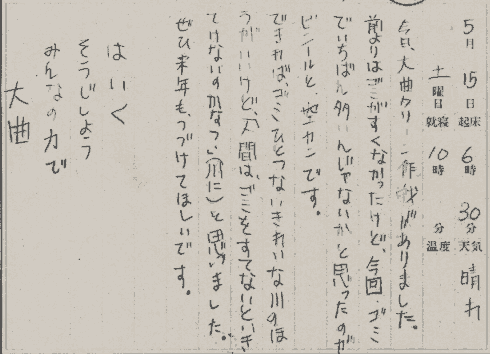 5月15日 起床6時30分 天気 晴れ
土曜日 就寝10時 分 温度
今日、大曲クリーン作戦がありました。
前よりはゴミがすくなかったけど、今回、ゴミ
でいちばん多いんじゃないかと思ったのが
ビニールと、空カンです。
できれば、ゴミひとつないきれいな川のほ
うがいいけど、人間は、ゴミをすてないといき
てけないのかなぁ、(川に)と思いました。
ぜひ来年も、つづけてほしいです。
はいく
そうじしよう
みんなの力で
大曲